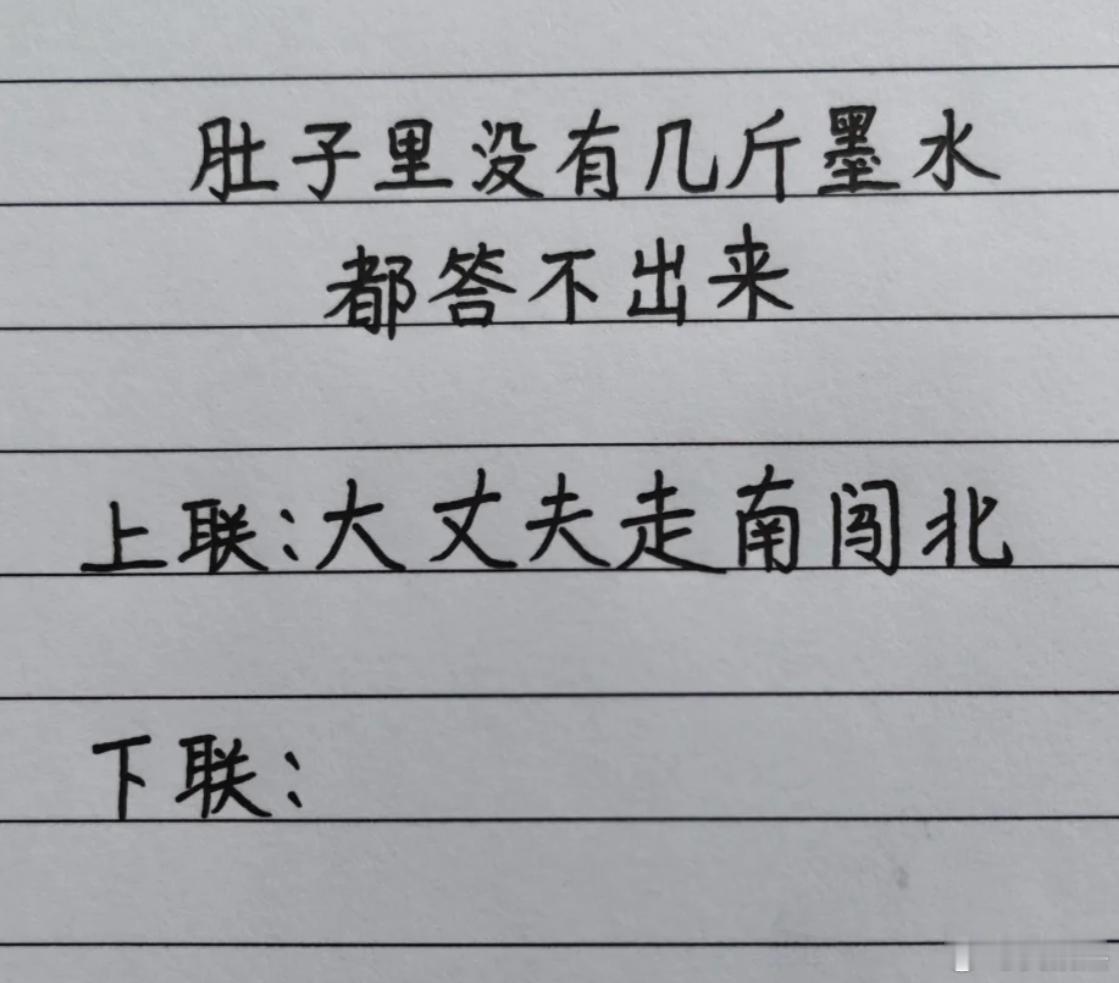 肚子里没有几斤墨水
都答不出来
上联:大丈夫走南闯北
下联: